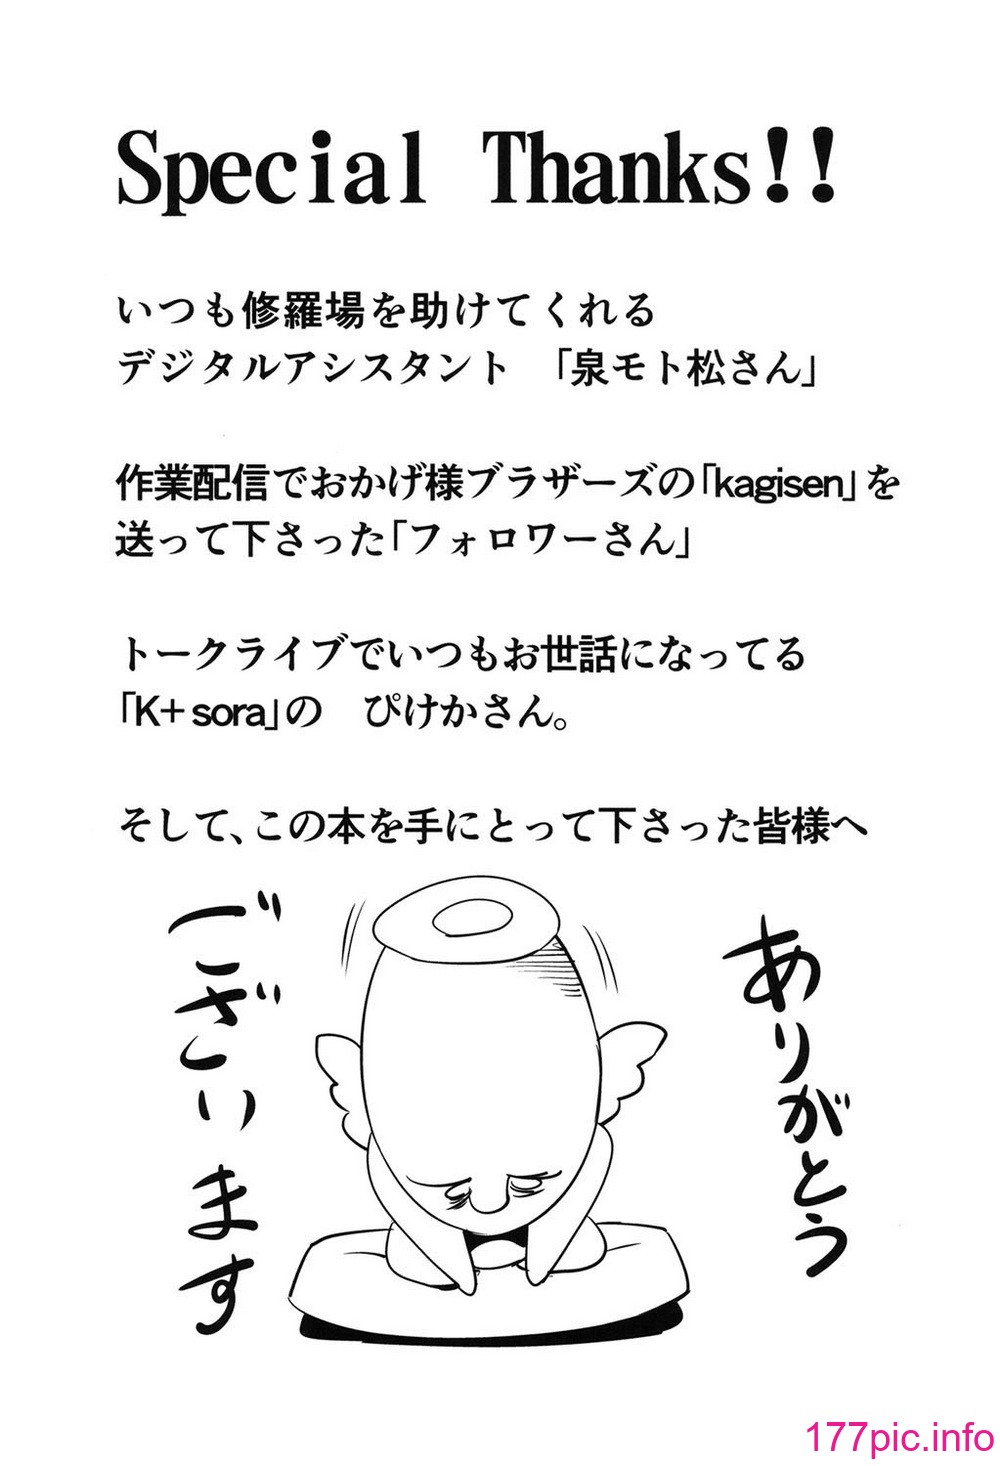 Special Thanks!!
いつも修羅場を助けてくれる
デジタルアシスタント　「泉モト松さん」
作業配信でおかげ様ブラザーズの「kagisen」を
送って下さった「フォロワーさん」
トークライブでいつもお世話になってる
「K+ sora」の　ぴけかさん。
そして、この本を手にとって下さった皆様へ
ありがとう
ございます
177pic.info